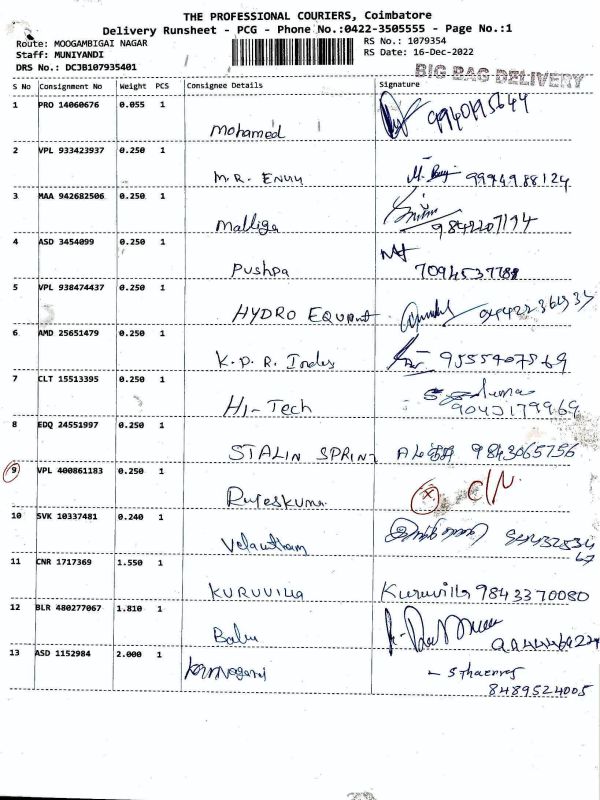 THE PROFESSIONAL COURIERS, Coimbatore
Delivery Runsheet - PCG - Phone No.:0422-3505555 - Page No.:1
Route: MOOGAMBIGAI NAGAR
RS No.: 1079354
Staff: MUNIYANDI
RS Date: 16-Dec-2022
DRS No.: DCJB107935401
BIG BAG DELIVERY
S No Consignment No Weight PCS Consignee Details Signature
1 PRO 14060676 0.055 1
Mohamed
2 VPL 933423937 0.250 1
M.R. 9994988124
3 MAA 942682506 0.250 1
Malliga
4 ASD 3454099 0.250 1
Pushpa
5 VPL 938474437 0.250 1
HYDRO
6 AMD 25651479 0.250 1
K.P.R. 9555407569
7 CLT 15513395 0.250 1
Hi-Tech
8 EDQ 24551997 0.250 1
STALIN SPRINT 9843065756
9 VPL 400861183 0.250 1
x C/N.
10 SVK 10337481 0.240 1
11 CNR 1717369 1.550 1
KURUVILLA Kuruvilla 9843370080
12 BLR 480277067 1.810 1
Babu
13 ASD 1152984 2.000 1
8489524005